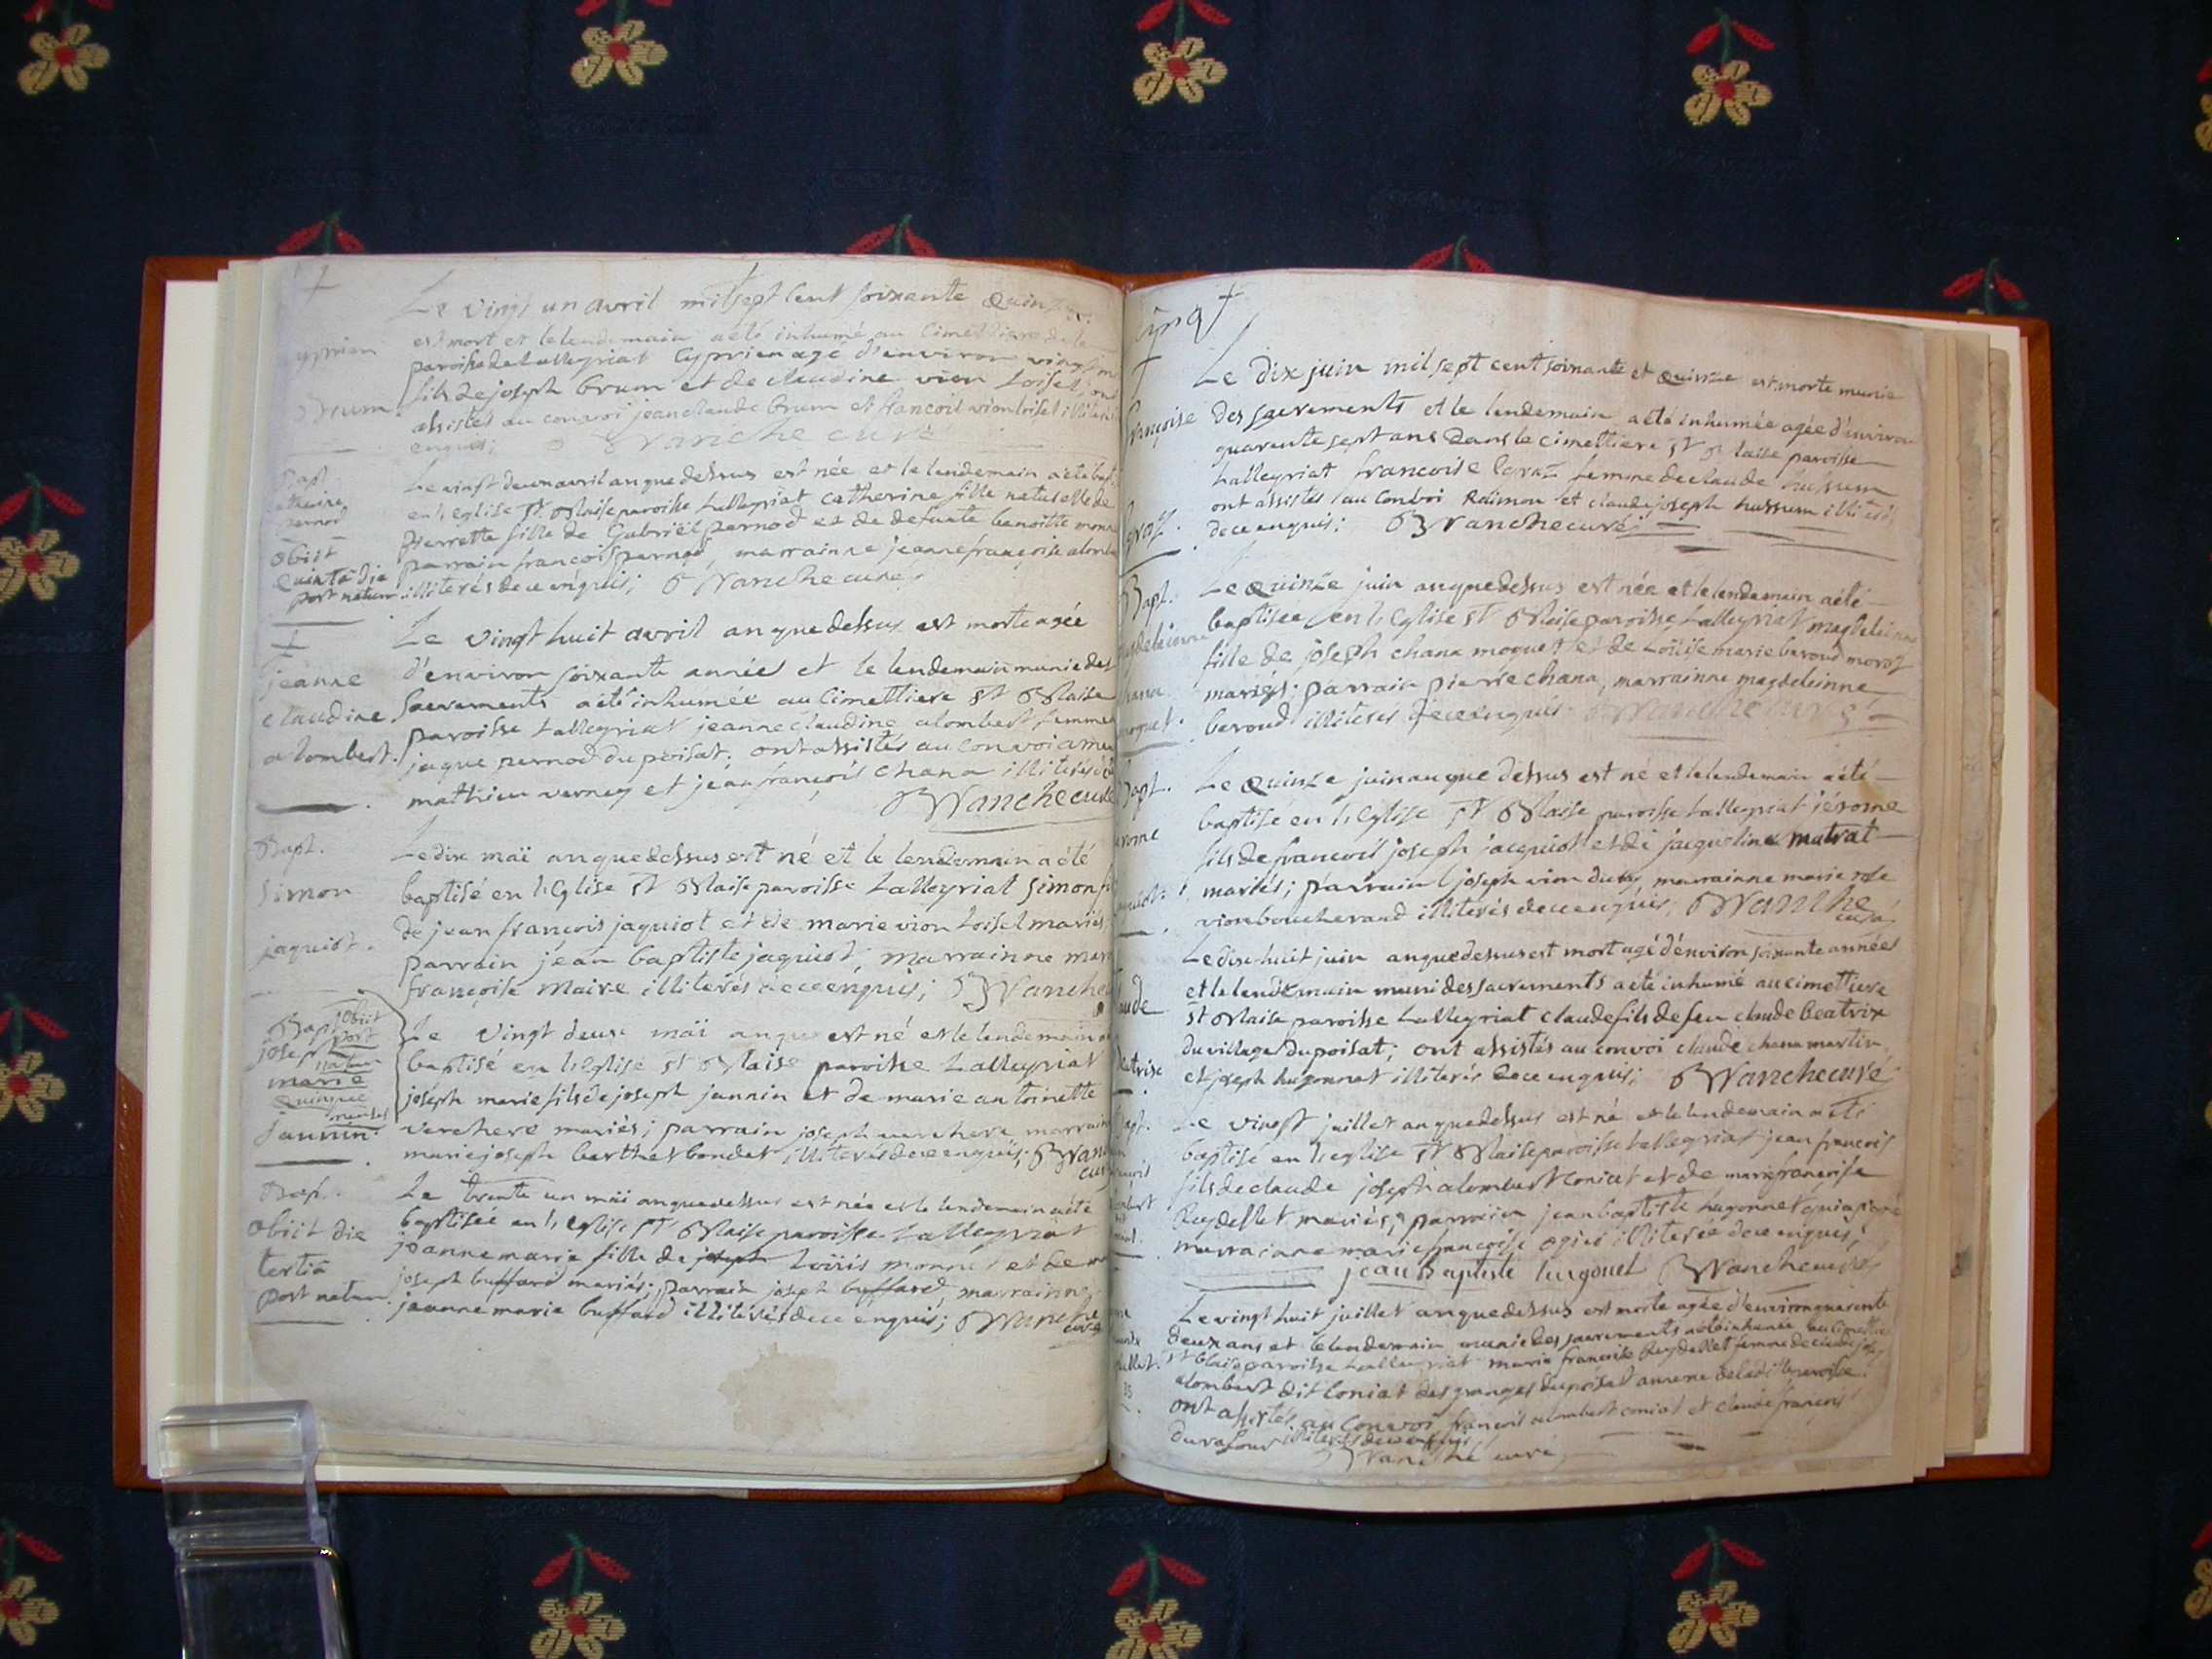 Le vingt un avril mil sept cent soixante Quinze
est mort et le lendemain a été inhumé au Cimettiere de la
paroisse de Lalleyriat Cyprien agé d'environ vingt
fils de joseph brum et de claudine vion Loisel; ont
assistés au convoi jean claude brum et francois vion loisel illiterés
enquis; Vanche curé
cyprien
Brum
Le vingt deux avril an que dessus est née et le lendemain a été bapt
en l'Eglise St Blaise paroisse Lalleyriat catherine fille naturelle de
pierrette fille de Gabriel pernod et de defunte benoitte
parrain francois pernod, marrainne jeanne françoise alombert
illiterés de ce enquis; Vanche curé
Bapt.
catherine
pernod
obiit
Quinta die
post natum
Le vingt huit avril an que dessus est morte agée
d'environ soixante année et le lendemain munie des
Sacrements a été inhumée au Cimettiere St Blaise
paroisse Lalleyriat jeanne claudine alombert femme
jaque pernod du poisat; ont assistés au convoi
mathieu verney et jean françois chana illiterés
Vanche curé
jeanne
claudine
alombert.
Le dix maï an que dessus est né et le lendemain a été
baptisé en l'Eglise St Blaise paroisse Lalleyriat Simon fi
de jean francois jaquiot et de marie vion Loisel mariés
parrain jean baptiste jaquiot, marrainne
françoise Maire illiterés de ce enquis; Vanche
Bapt.
Simon
jaquiot.
Le vingt deux maï an que est né et le lendemain
baptisé en l'Eglise St Blaise paroisse Lalleyriat
joseph marie fils de joseph jannin et de marie antoinette
verchere mariés; parrain joseph verchere marrain
marie joseph berthet bondet illiterés de ce enquis; Vanche
curé
Bapt.
joseph
marie
Jannin.
obiit
post
natum
Quinque
menses
Le trente un maï an que dessus est née et le lendemain a été
baptisée en l'Eglise St Blaise paroisse Lalleyriat
jeanne marie fille de joseph Loüis monnet et de
joseph buffard mariés; parrain joseph buffard, marrainne
jeanne marie buffard illiterés de ce enquis; Vanche
curé
Bapt.
obiit die
tertiâ
post natum
Le dix juin mil sept cent soixante et Quinze est morte munie
des sacrements et le lendemain a été inhumée agée d'environ
quarente sept ans dans le cimettiere St Blaise paroisse
Lalleyriat francoise Cavaz femme de claude hussum
ont assistés au Convoi Raimon et claude joseph hussum illiterés
de ce enquis; Vanche curé
françoise
Le Quinze juin an que dessus est née et le lendemain a été
baptisée en l'Eglise St Blaise paroisse Lalleyriat magdeleinne
fille de joseph chana moquet et de Loüise marie baroud
mariés; parrain pierre chana, marrainne magdeleinne
baroud illiterés de ce enquis Vanche curé
Bapt.
magdeleinne
chana
moquet.
Le Quinze juin an que dessus est né et le lendemain a été
baptisé en l'Eglise St Blaise paroisse Lalleyriat jérome
fils de francois joseph jacquiot et de jacqueline matrat
mariés; parrain joseph vion dury, marrainne marie rose
vion boucherand illiterés de ce enquis; Vanche
curé
Bapt.
jerome
Le dix huit juin an que dessus est mort agé d'environ soixante années
et le lendemain muni des sacrements a été inhumé au cimettiere
St Blaise paroisse Lalleyriat claude fils de feu claude beatrix
du village du poisat; ont assistés au convoi claude chana martin
et joseph hugonnet illiterés de ce enquis; Vanche curé
claude
beatrix
Le vingt juillet an que dessus est né et le lendemain a été
baptisé en l'église St Blaise paroisse Lalleyriat jean francois
fils de claude joseph alombert Coniat et de marie francoise
Reydellet mariés; parrain jean baptiste hugonnet
marrainne marie francoise ogier illiterée de ce enquis;
jean Baptiste hugonet Vanche curé
Bapt.
Le vingt huit juillet an que dessus est morte agée d'environ quarente
deux ans et le lendemain munie des sacrements a été inhumée au cimettiere
St blaise paroisse Lalleyriat marie francoise Reydellet femme de claude josep
alombert dit Coniat des granges du poisat annexe de la ditte paroisse
ont assistés au Convoi françois alombert coniat et claude françois
durafour illiterés de ce enquis
Vanche curé